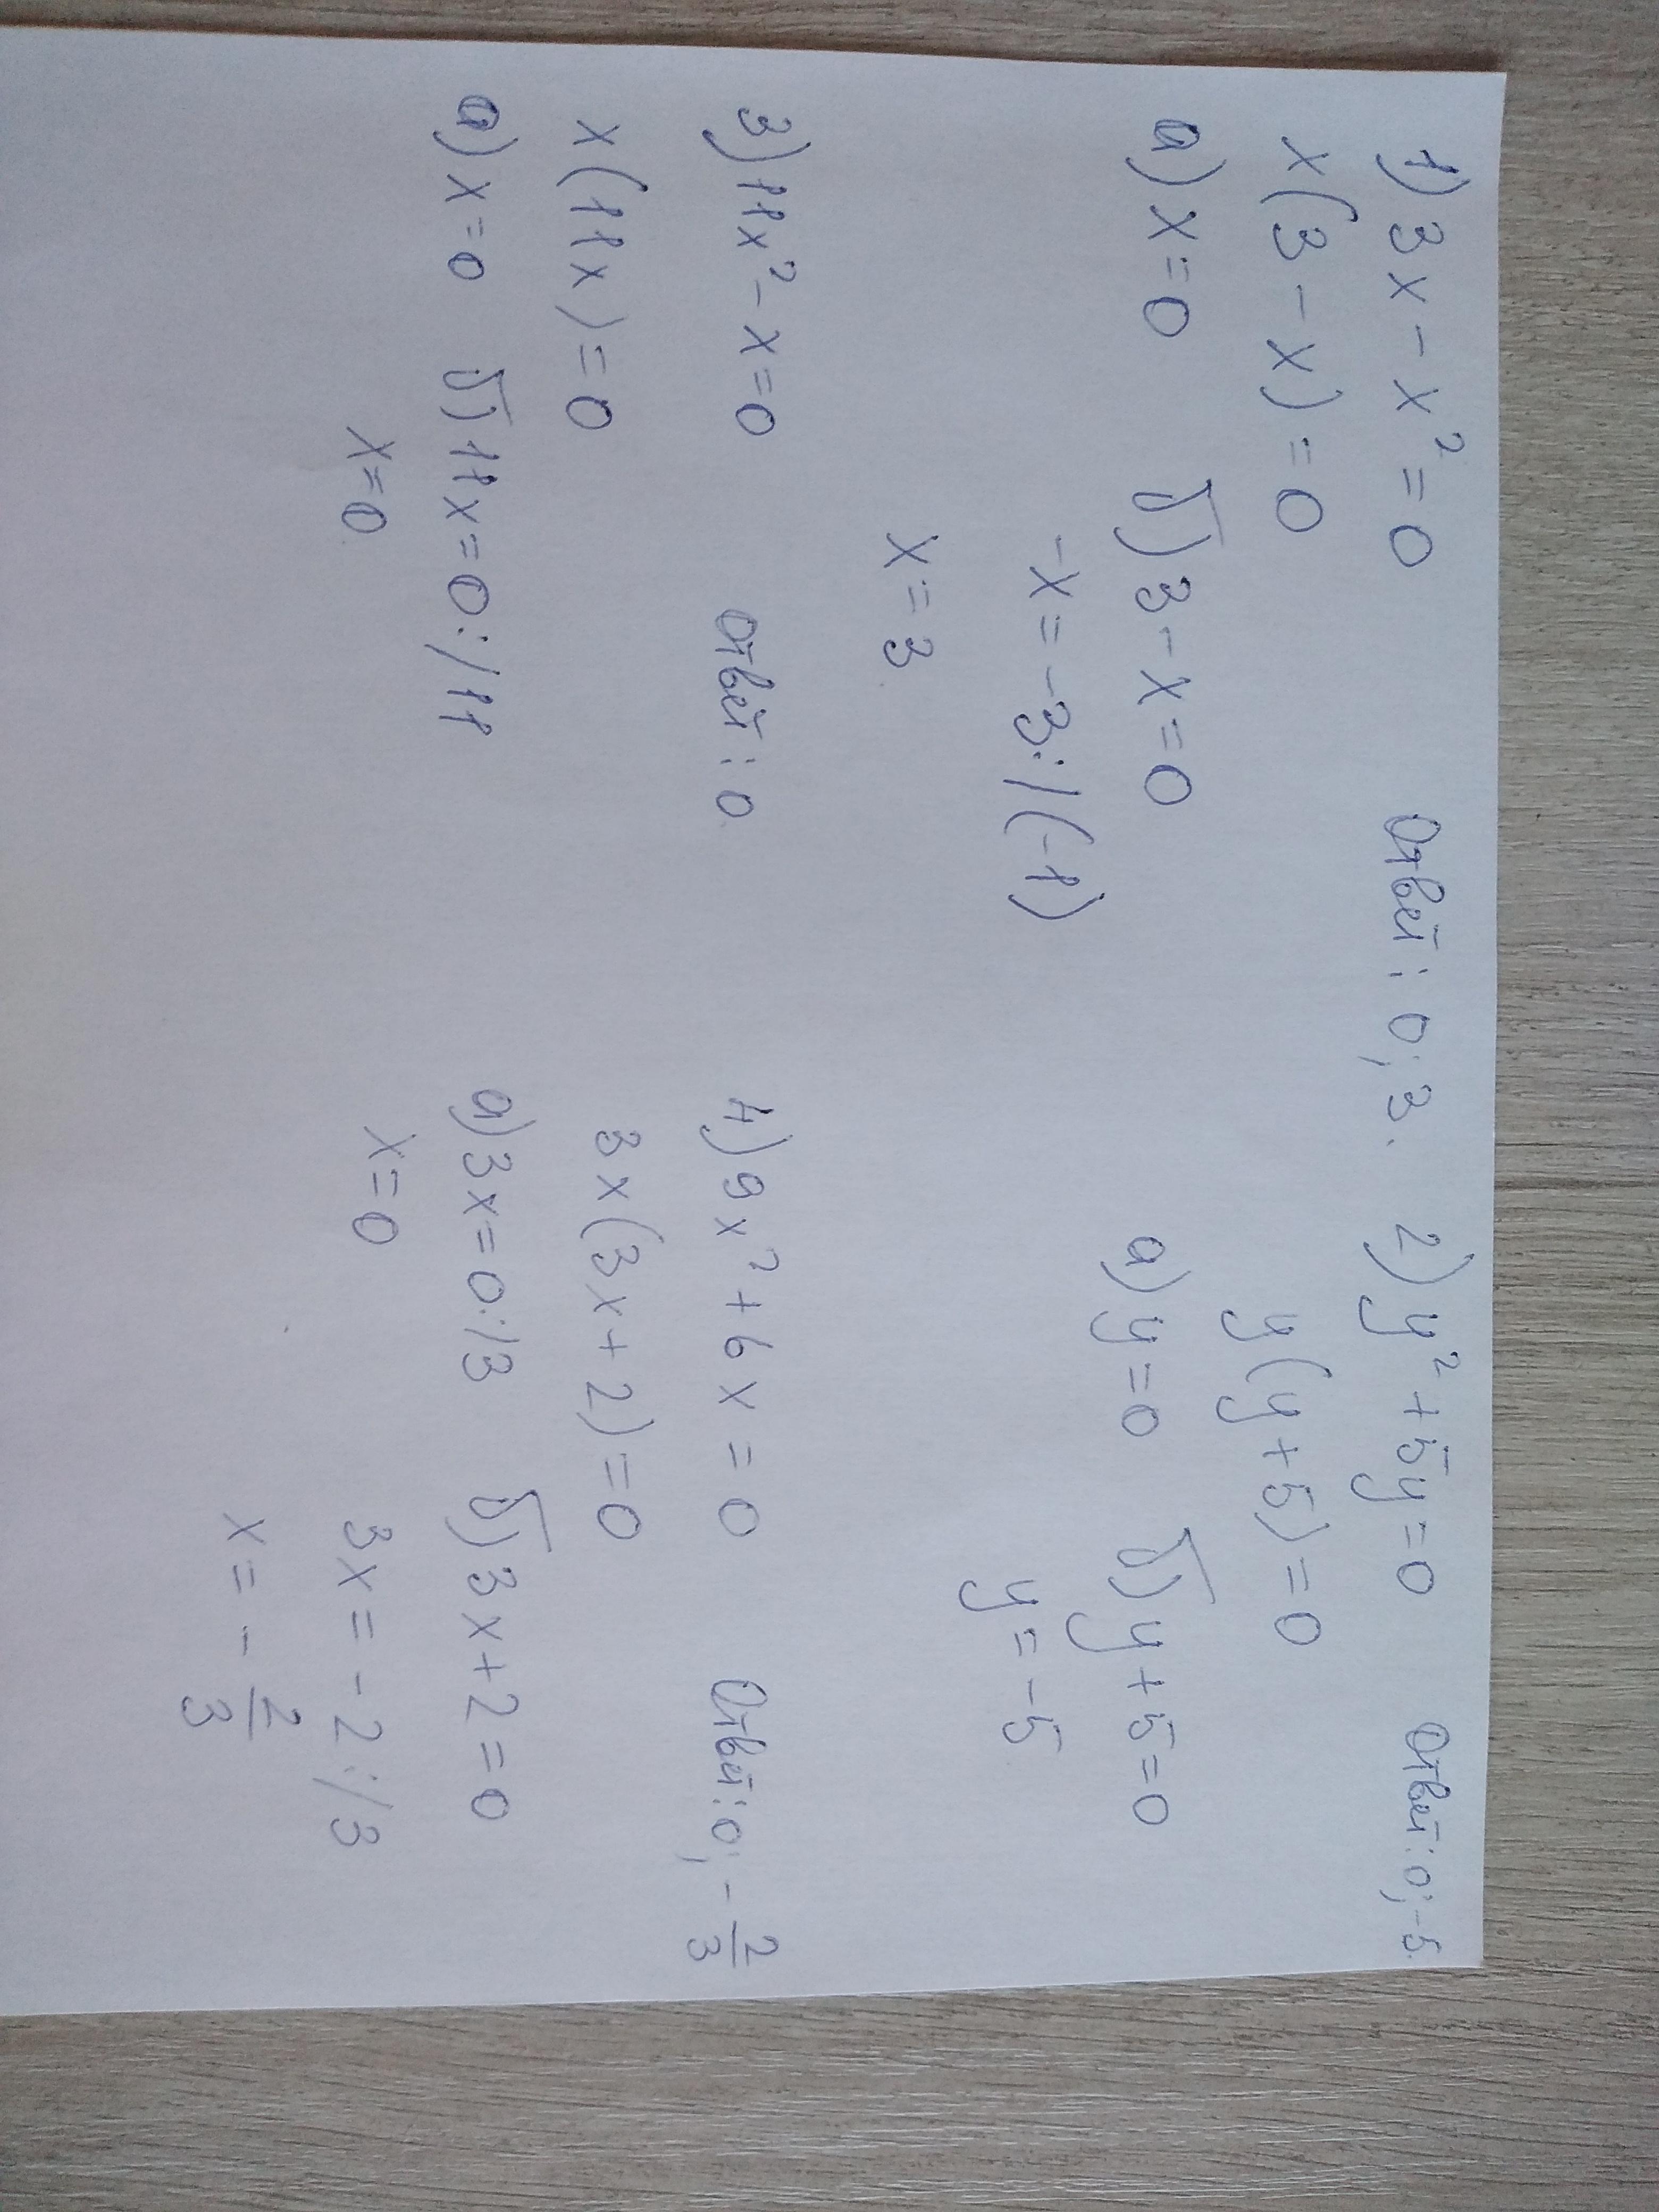 1) 3x - x² = 0 Ответ: 0; 3.
x(3 - x) = 0
а) x = 0 б) 3 - x = 0
-x = -3 :/(-1)
x = 3.
2) y² + 5y = 0 Ответ: 0; -5.
y(y + 5) = 0
а) y = 0 б) y + 5 = 0
y = -5.
3) 11x² - x = 0 Ответ: 0.
x(11x) = 0
а) x = 0 б) 11x = 0 :/11
x = 0.
4) 9x² + 6x = 0 Ответ: 0; -2/3
3x(3x + 2) = 0
а) 3x = 0 :/3 б) 3x + 2 = 0
x = 0 3x = -2 :/3
x = -2/3